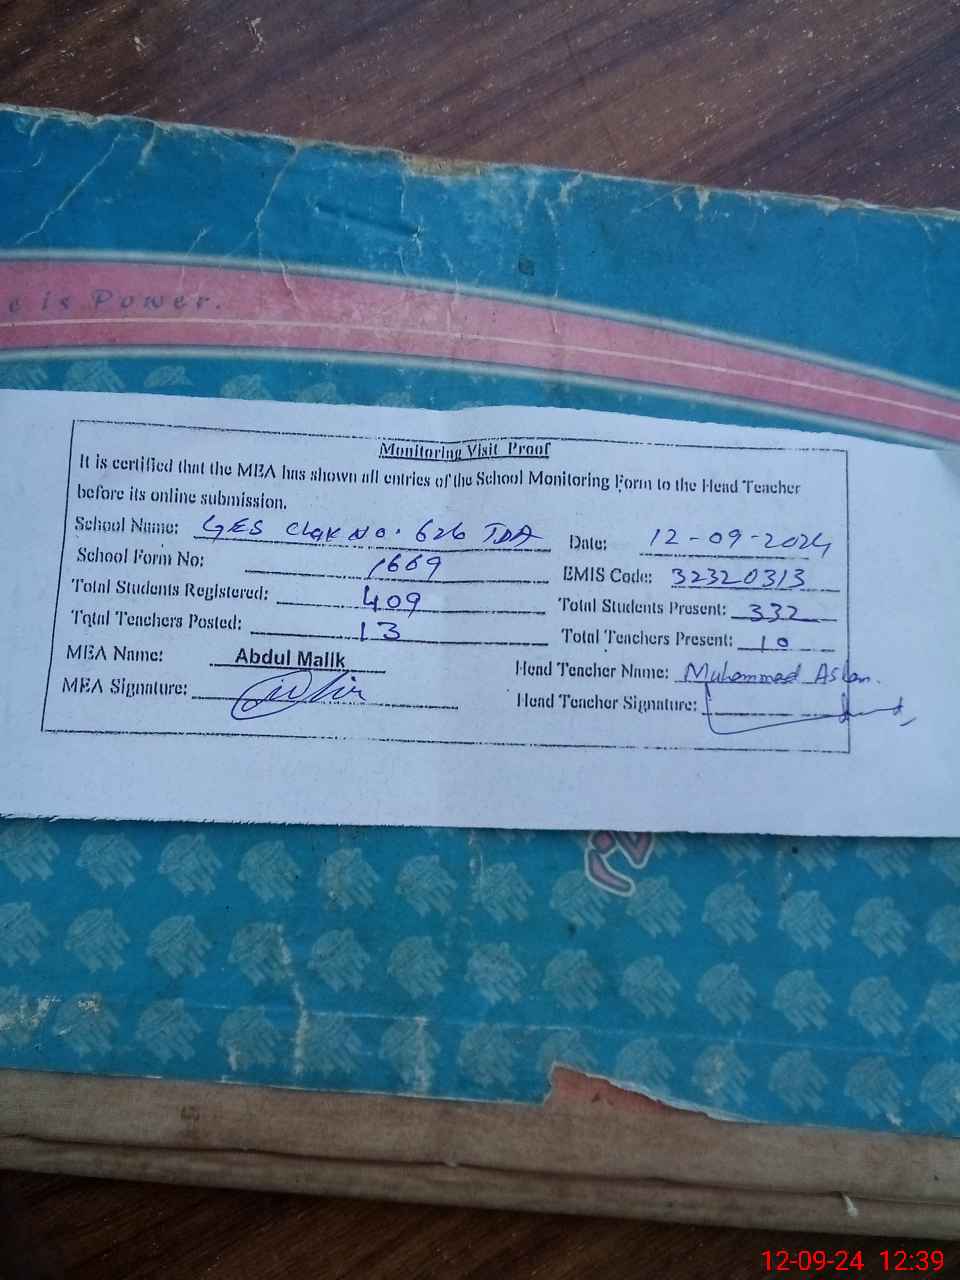 e is Power.
Monitoring Visit Proof
It is certified that the MEA has shown all entries of the School Monitoring Form to the Head Teacher
before its online submission.
School Name: GES Chak No. 626 TDA Date: 12-09-2024
School Form No: 1669 EMIS Code: 32320313
Total Students Registered: 409 Total Students Present: 332
Total Teachers Posted: 13 Total Teachers Present: 10
MEA Name: Abdul Malik Head Teacher Name: Muhammad Aslam.
MEA Signature: Head Teacher Signature:
12-09-24 12:39